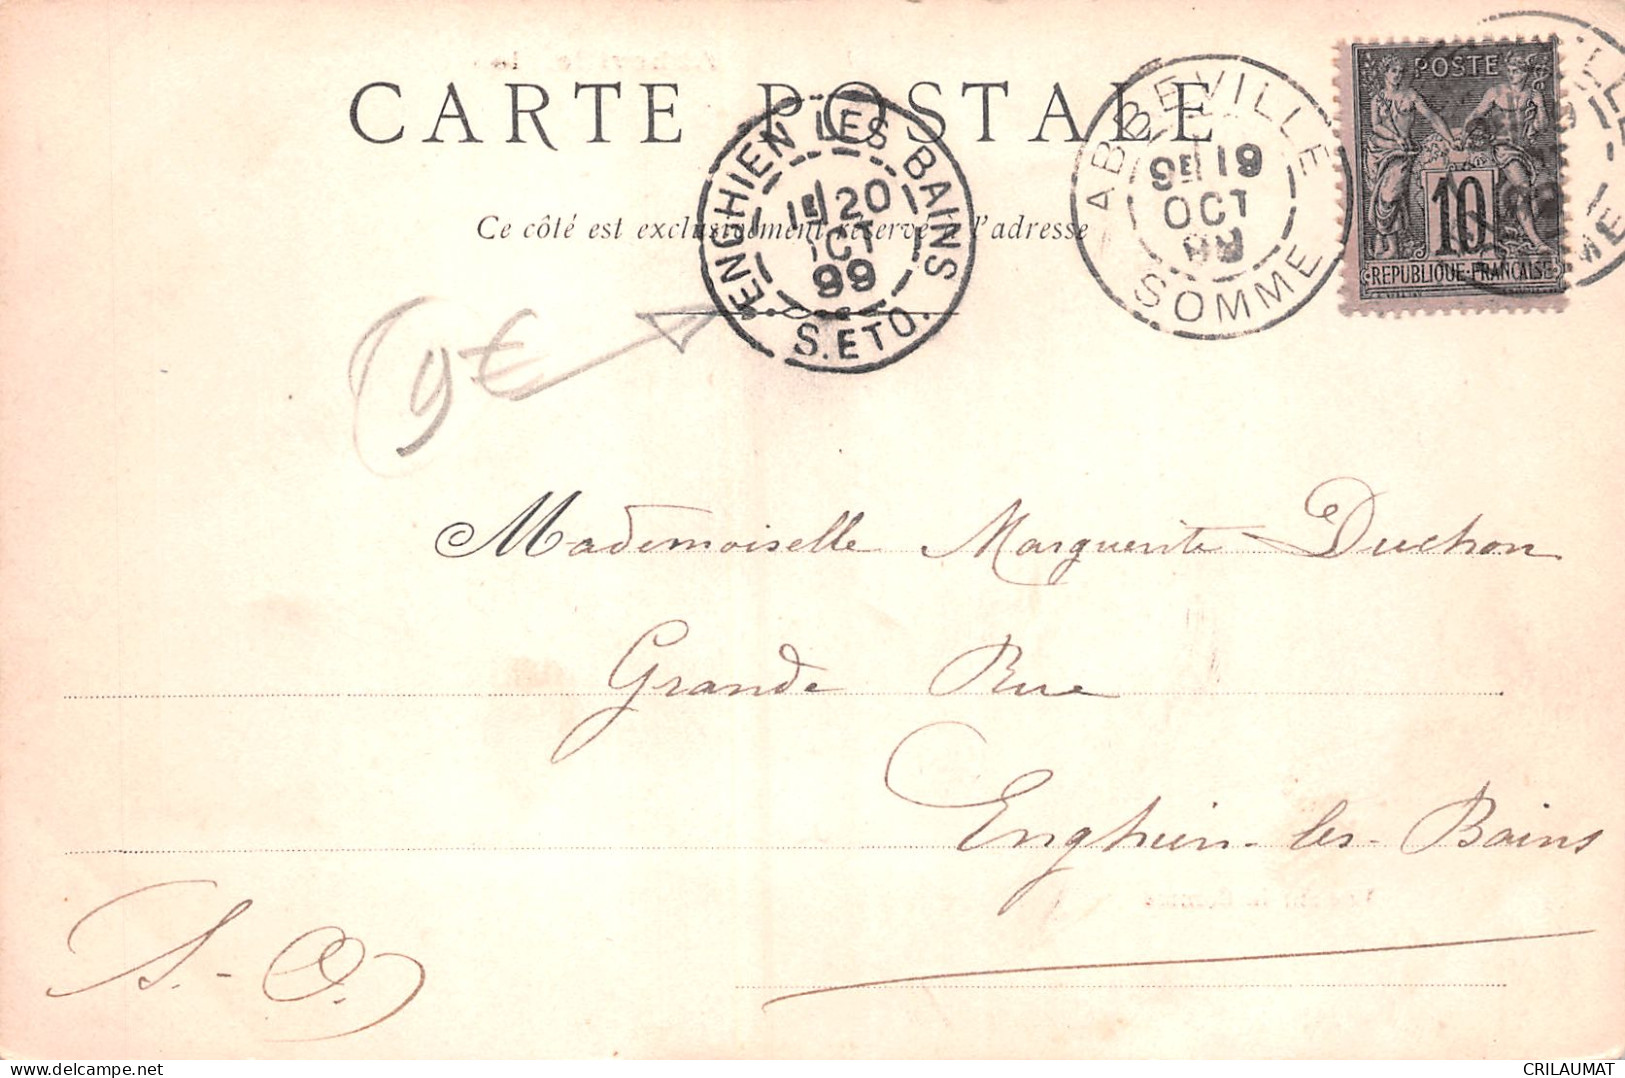 CARTE POSTALE
Ce côté est exclusivement réservé à l'adresse
ENGHIEN LES BAINS
1E/20
OCT
99
S. ET O.
ABBEVILLE
9E/19
OCT
99
SOMME
POSTE
10
REPUBLIQUE FRANCAISE
9€
Mademoiselle Marguerite Duchon
Grande Rue
Enghien-les-Bains
S.-O.
www.delcampe.net
CRILAUMAT